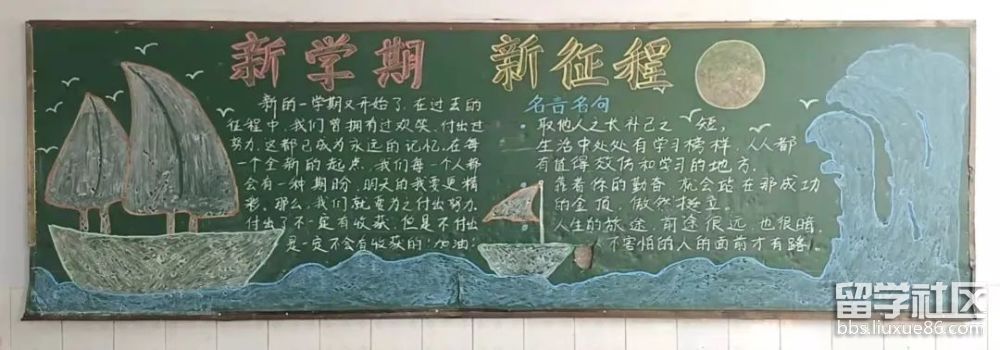 新学期 新征程
新的一学期又开始了,在过去的
征程中,我们曾拥有过欢笑,付出过
努力,这都已成为永远的记忆,在每
一个全新的起点,我们每一个人都
会有一种期盼,明天的我要更精
彩,那么,我们就要为之付出努力,
付出了不一定有收获,但是不付出
是一定不会有收获的!加油!
名言名句
取他人之长补己之 短,
生活中处处有学习榜样,人人都
有值得效仿和学习的地方.
靠着你的勤奋 就会踏在那成功
的金顶,傲然挺立.
人生的旅途,前途很远,也很暗,
不害怕的人的面前才有路!
留学社区
bbs.liuxue86.com